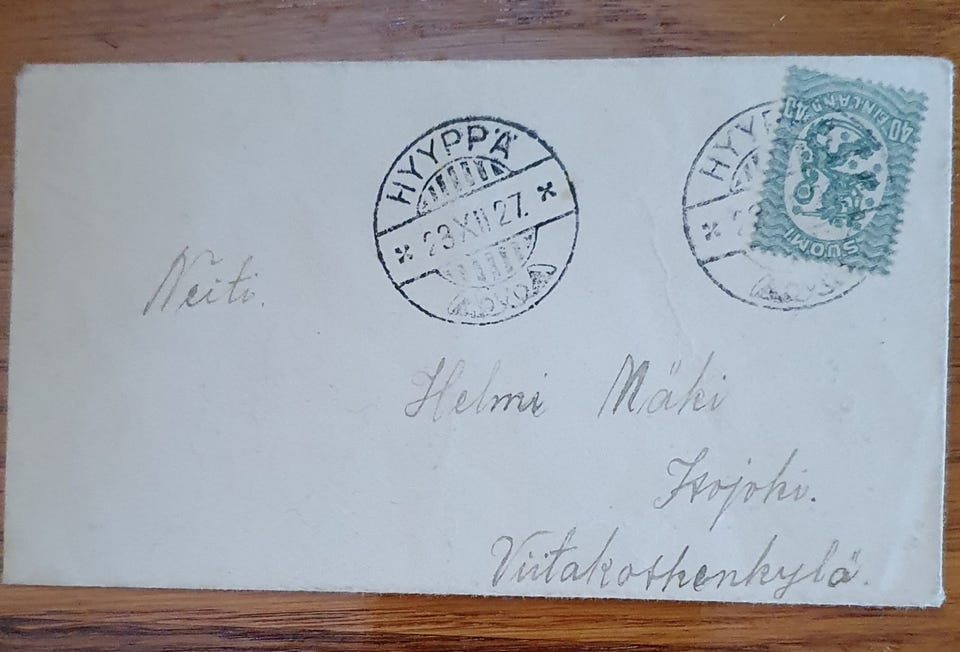 HYYPPÄ
23.XII.27.
HYYP
40 FINLAND 40
SUOMI
Neiti.
Helmi Mäki
Isojoki.
Viitakoskenkylä.